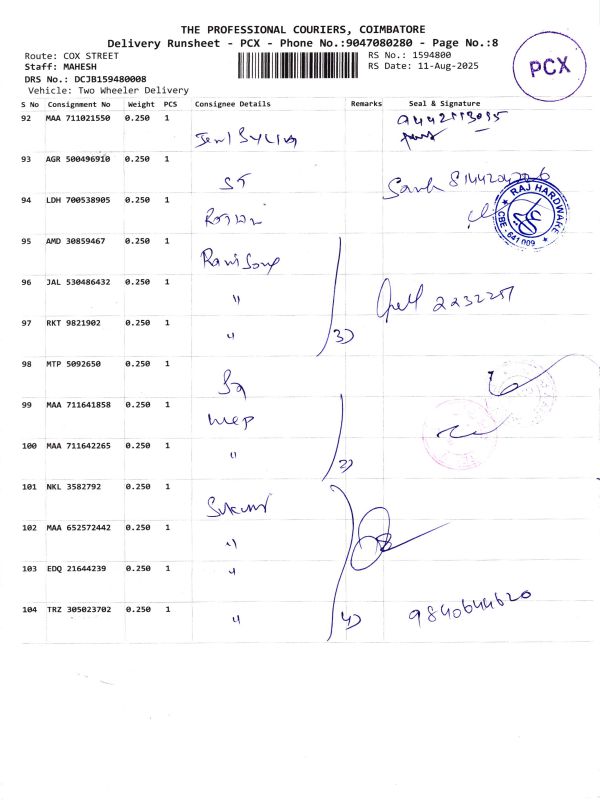 THE PROFESSIONAL COURIERS, COIMBATORE
Delivery Runsheet - PCX - Phone No.:9047080280 - Page No.:8
Route: COX STREET
RS No.: 1594800
Staff: MAHESH
RS Date: 11-Aug-2025
DRS No.: DCJB159480008
Vehicle: Two Wheeler Delivery
PCX
S No Consignment No Weight PCS Consignee Details Remarks Seal & Signature
92 MAA 711021550 0.250 1
93 AGR 500496910 0.250 1
ST
94 LDH 700538905 0.250 1
RAJ HARDWARE
CBE - 641 009
95 AMD 30859467 0.250 1
96 JAL 530486432 0.250 1
" 2232257
97 RKT 9821902 0.250 1
" 3)
98 MTP 5092650 0.250 1
99 MAA 711641858 0.250 1
MEP
100 MAA 711642265 0.250 1
" 2)
101 NKL 3582792 0.250 1
102 MAA 652572442 0.250 1
"
103 EDQ 21644239 0.250 1
"
104 TRZ 305023702 0.250 1
" 4) 9840644620